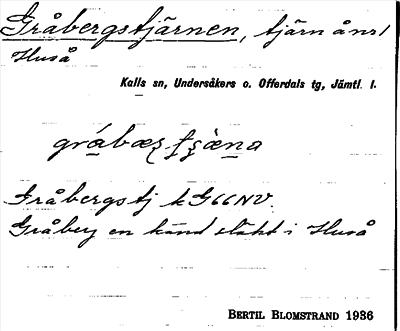 Gråbergstjärnen, tjärn å nr 1
Huså
Kalls sn, Undersåkers o. Offerdals tg, Jämtl. l.
Gråbergstj k G66NV.
Gråberg en känd släkt i Huså
BERTIL BLOMSTRAND 1936